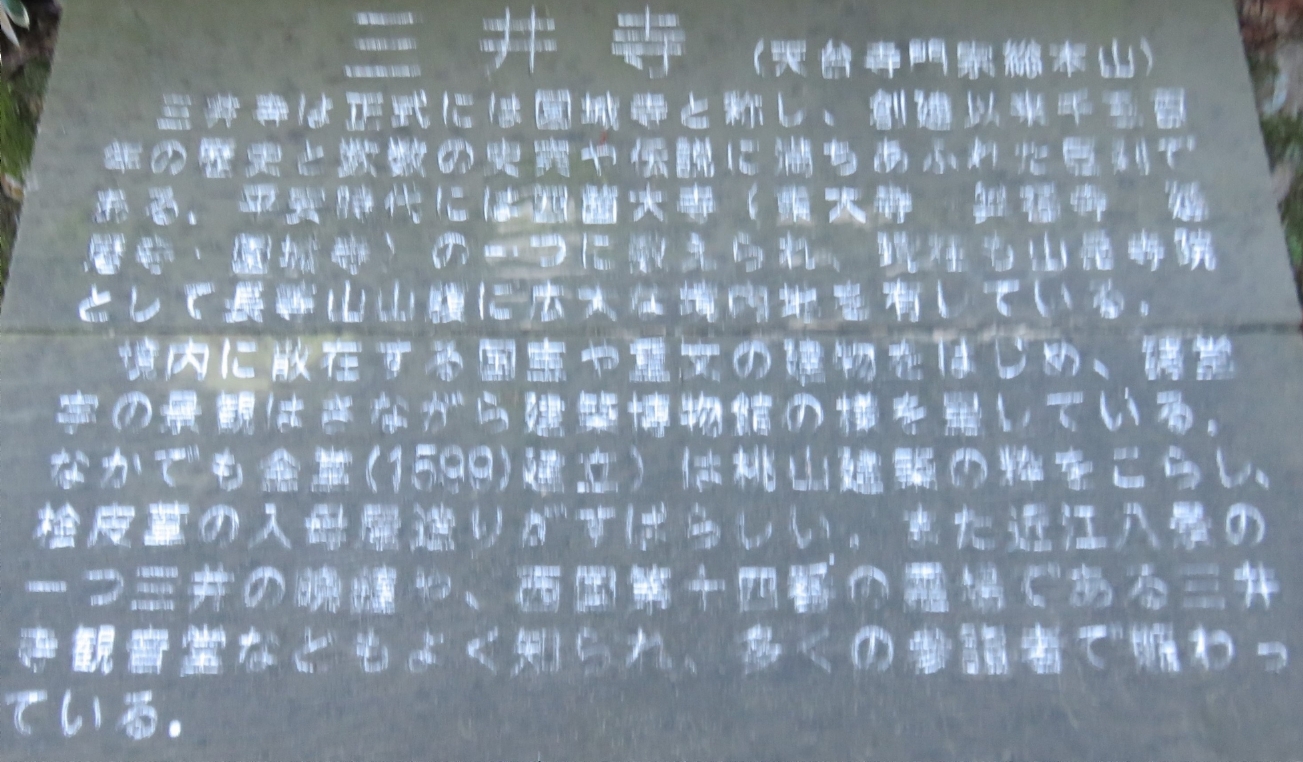 三井寺 (天台寺門宗総本山)
三井寺は正式には園城寺と称し、創建以来千五百
年の歴史と数数の史実や伝説に満ちあふれた名刹で
ある。平安時代には四箇大寺(東大寺 興福寺 延
暦寺・園城寺)の一つに数えられ、現在も山岳寺院
として長等山山腹に広大な境内地を有している。
境内に散在する国宝や重文の建物をはじめ、諸堂
宇の景観はさながら建築博物館の様を呈している。
なかでも金堂(1599)建立)は桃山建築の粋をこらし、
桧皮葺の入母屋造りがすばらしい。また近江八景の
一つ三井の晩鐘や、西国第十四番の霊場である三井
寺観音堂などもよく知られ、多くの参詣者で賑わっ
ている。